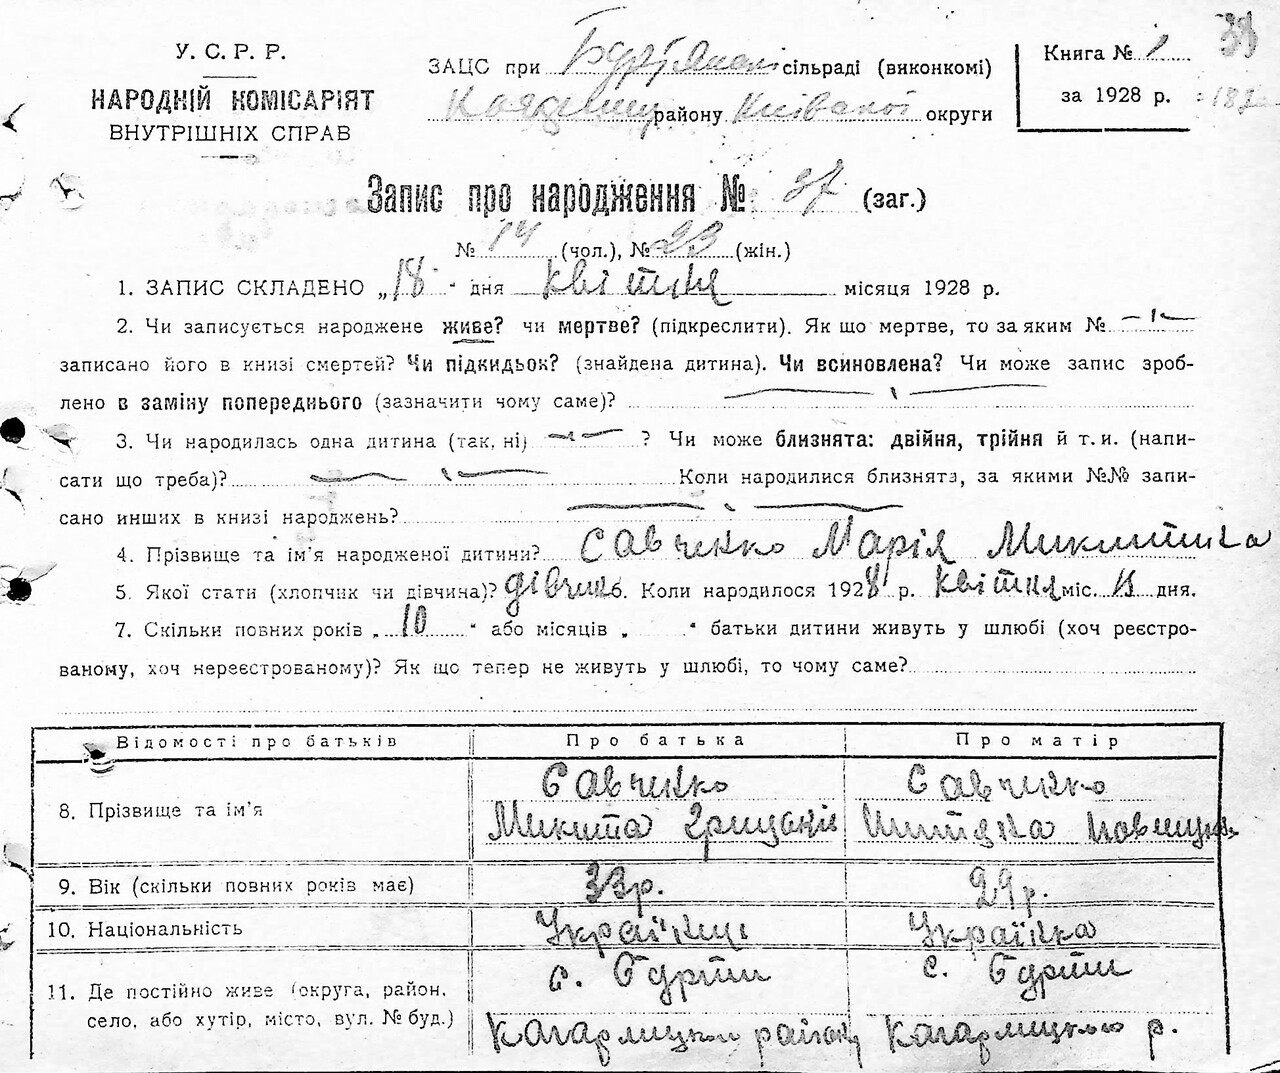 У. С. Р. Р.
НАРОДНІЙ КОМІСАРІЯТ
ВНУТРІШНІХ СПРАВ
ЗАЦС при сільраді (виконкомі)
району Київської округи
Книга № 1
за 1928 р.
38
Запис про народження № 37 (заг.)
№ 14 (чол.), № 23 (жін.)
1. ЗАПИС СКЛАДЕНО „18" дня квітня місяця 1928 р.
2. Чи записується народжене живе? чи мертве? (підкреслити). Як що мертве, то за яким №
записано його в книзі смертей? Чи підкидьок? (знайдена дитина). Чи всиновлена? Чи може запис зроб-
лено в заміну попереднього (зазначити чому саме)?
3. Чи народилась одна дитина (так, ні) ? Чи може близнята: двійня, трійня й т. и. (напи-
сати що треба)? Коли народилися близнята, за якими №№ запи-
сано инших в книзі народжень?
4. Прізвище та ім'я народженої дитини? Савченко Марія Микитина
5. Якої стати (хлопчик чи дівчина)? дівчин 6. Коли народилося 1928 р. квітня міс. дня.
7. Скільки повних років „10" або місяців „ " батьки дитини живуть у шлюбі (хоч реєстро-
ваному, хоч нереєстрованому)? Як що тепер не живуть у шлюбі, то чому саме?
Відомості про батьків Про батька Про матір
8. Прізвище та ім'я Савченко Микита Грицьків Савченко
9. Вік (скільки повних років має) 33 р. 29 р.
10. Національність Українець Українка
11. Де постійно живе (округа, район, с. Бурти с. Бурти
село, або хутір, місто, вул. № буд.) Кагарлицький району Кагарлицького р.